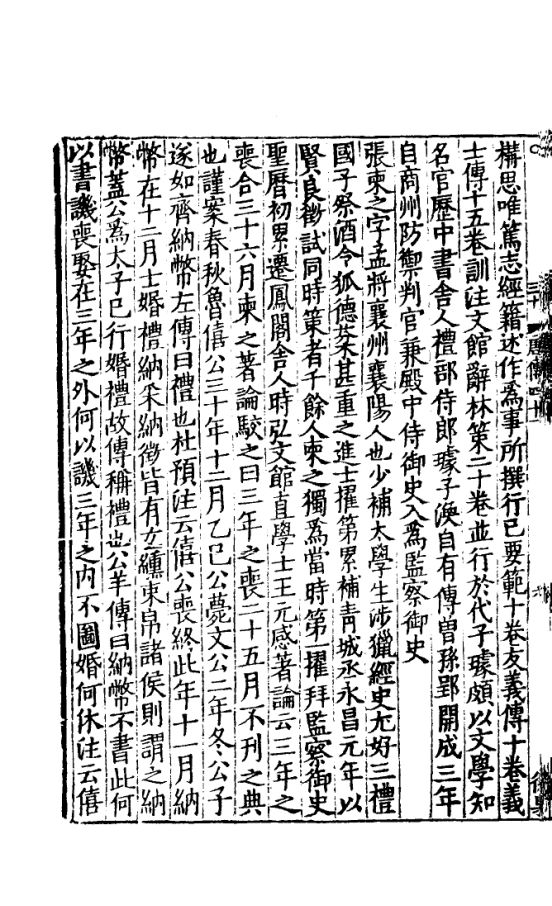 構思唯篤志經籍述作爲事所撰行己要範十卷友義傳十卷義
士傳十五卷訓注文館辭林策二十卷並行於代子璩頗以文學知
名官歷中書舍人禮部侍郎璩子渙自有傳曽孫郢開成三年
自商州防禦判官兼殿中侍御史入爲監察御史
張柬之字孟將襄州襄陽人也少補太學生涉獵經史尤好三禮
國子祭酒令狐德棻甚重之進士擢第累補青城丞永昌元年以
賢良徵試同時策者千餘人柬之獨爲當時第一擢拜監察御史
聖曆初累遷鳳閣舍人時弘文館直學士王元感著論云三年之
喪合三十六月柬之著論駮之曰三年之喪二十五月不刊之典
也謹案春秋魯僖公三十年十二月乙巳公薨文公二年冬公子
遂如齊納幣左傳曰禮也杜預注云僖公喪終此年十一月納
幣在十二月士婚禮納采納徵皆有玄纁束帛諸侯則謂之納
幣蓋公爲太子已行婚禮故傳稱禮也公羊傳曰納幣不書此何
以書譏喪娶在三年之外何以譏三年之内不圖婚何休注云僖